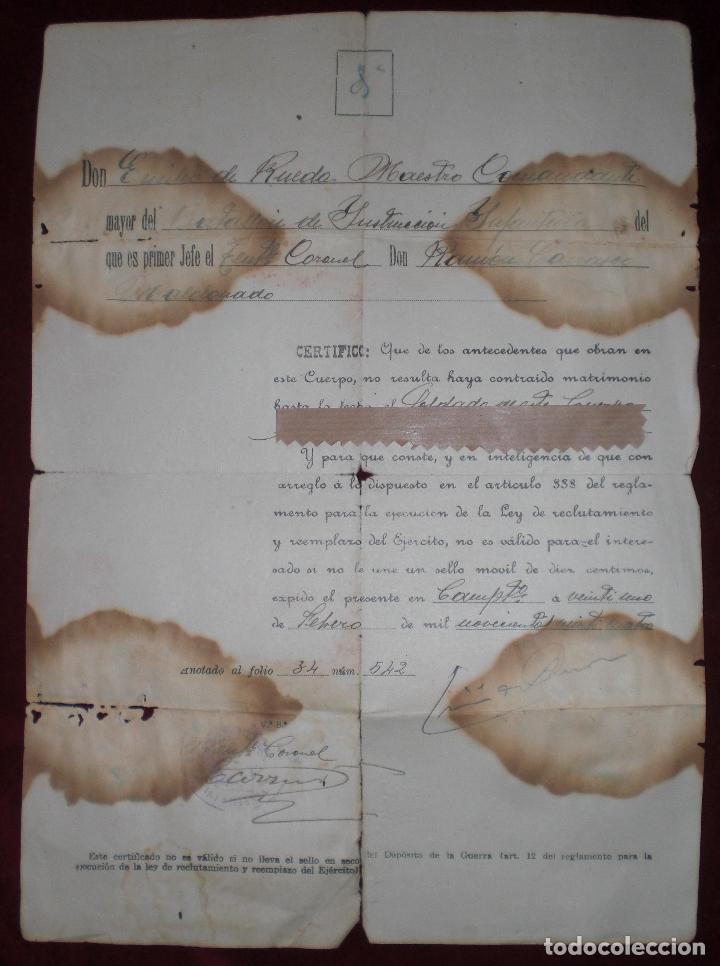 8ª
Don Emilio de Rueda Maestro Comandante
mayor del Batallón de Instrucción Infantería del
que es primer Jefe el Tente Coronel Don Ramón Carrasco
Maldonado
CERTIFICO: Que de los antecedentes que obran en
este Cuerpo, no resulta haya contraido matrimonio
hasta la fecha el Soldado de este Cuerpo
Y para que conste, y en inteligencia de que con
arreglo á lo dispuesto en el articulo 338 del regla-
mento para la ejecucion de la Ley de reclutamiento
y reemplazo del Ejército, no es válido para el intere-
sado si no le une un sello movil de diez centimos,
expido el presente en Campto a veintiuno
de Febrero de mil novecientos veinticuatro
Anotado al folio 34 núm. 542
V.º B.º
El Tente Coronel
Carrasco
Este certificado no es válido si no lleva el sello en seco del Depósito de la Guerra (art. 12 del reglamento para la
ejecución de la ley de reclutamiento y reemplazo del Ejército)
todocoleccion.net